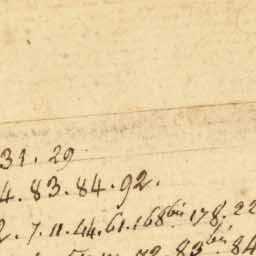 31. 29
4. 83. 84. 92.
2. 7. 11. 44. 61. 168bis. 178. 22
72. 83bis. 84